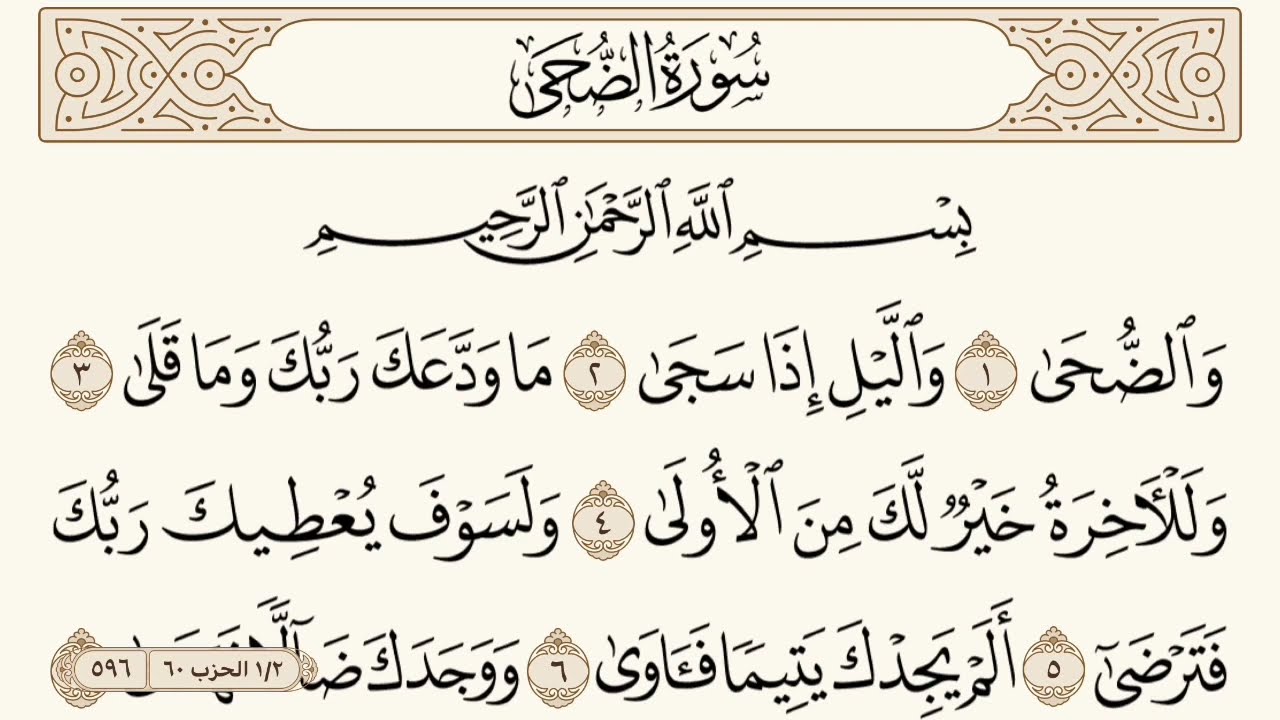 سُورَةُ الضُّحَى
بِسْمِ ٱللَّهِ ٱلرَّحْمَٰنِ ٱلرَّحِيمِ
وَٱلضُّحَىٰ ١ وَٱلَّيْلِ إِذَا سَجَىٰ ٢ مَا وَدَّعَكَ رَبُّكَ وَمَا قَلَىٰ ٣
وَلَلْـَٔاخِرَةُ خَيْرٌ لَّكَ مِنَ ٱلْأُولَىٰ ٤ وَلَسَوْفَ يُعْطِيكَ رَبُّكَ
فَتَرْضَىٰٓ ٥ أَلَمْ يَجِدْكَ يَتِيمًا فَـَٔاوَىٰ ٦ وَوَجَدَكَ
١/٢ الحزب ٦٠ ٥٩٦